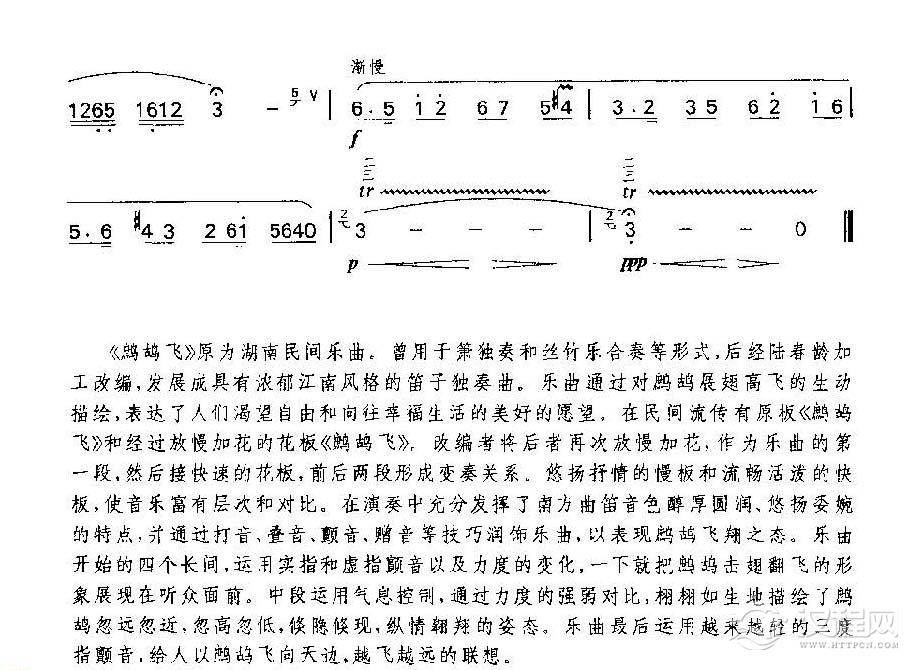 渐慢
1265 1612 3 - 5 V 6·5 12 67 5#4 3·2 35 62 16
f
二三 二三
tr tr
5·6 #43 261 5640 2 3 - - - 2 3 - - 0
p ppp
《鹧鸪飞》原为湖南民间乐曲。曾用于箫独奏和丝竹乐合奏等形式,后经陆春龄加
工改编,发展成具有浓郁江南风格的笛子独奏曲。乐曲通过对鹧鸪展翅高飞的生动
描绘,表达了人们渴望自由和向往幸福生活的美好的愿望。在民间流传有原板《鹧鸪
飞》和经过放慢加花的花板《鹧鸪飞》。改编者将后者再次放慢加花,作为乐曲的第
一段,然后接快速的花板,前后两段形成变奏关系。悠扬抒情的慢板和流畅活泼的快
板,使音乐富有层次和对比。在演奏中充分发挥了南方曲笛音色醇厚圆润、悠扬委婉
的特点,并通过打音、叠音、颤音、赠音等技巧润饰乐曲,以表现鹧鸪飞翔之态。乐曲
开始的四个长间,运用实指和虚指颤音以及力度的变化,一下就把鹧鸪击翅翻飞的形
象展现在听众面前。中段运用气息控制,通过力度的强弱对比,栩栩如生地描绘了鹧
鸪忽远忽近,忽高忽低,倏隐倏现,纵情翱翔的姿态。乐曲最后运用越来越轻的三度
指颤音,给人以鹧鸪飞向天边,越飞越远的联想。